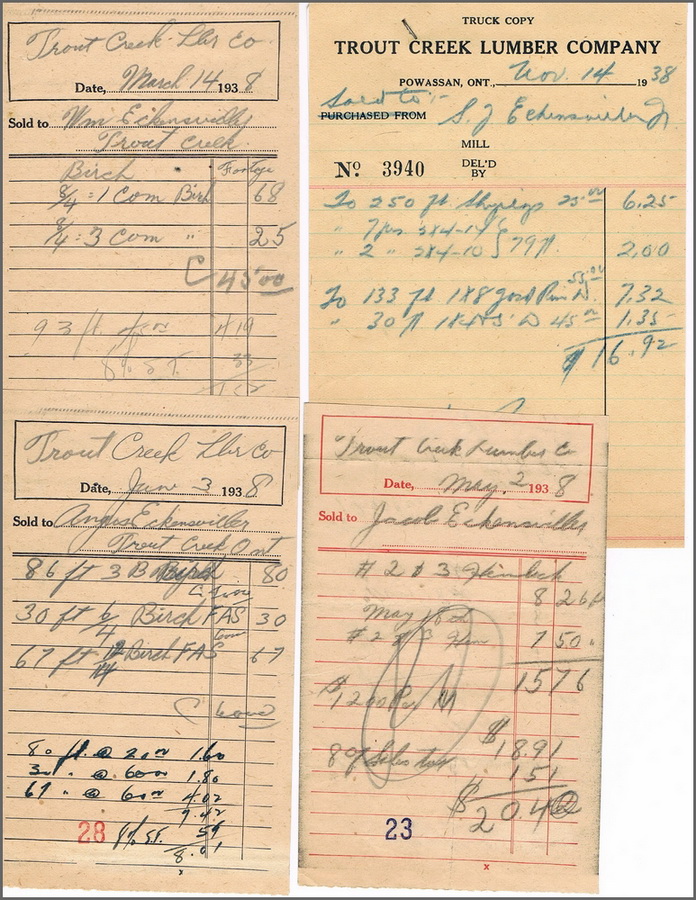 Trout Creek Lbr Co.
Date, March 14 1938
Sold to Wm Eckensviller
Trout Creek
Birch Footage
8/4 = 1 Com Birch 68
8/4 = 3 Com " 25
C 45 00
93 ft. 45 00 419
8% S.T.
TRUCK COPY
TROUT CREEK LUMBER COMPANY
POWASSAN, ONT., Nov. 14 1938
Sold to:-
PURCHASED FROM S. J Eckensviller Jr.
MILL
No. 3940 DEL'D BY
To 250 ft 25.00 6.25
" 7 pcs 2x4-14
" 2 " 2x4-10 } 79 ft. 2.00
To 133 ft 1x8 good Pine D. 55.00 7.32
" 30 ft 1x4 D 45 00 1.35
$ 16.92
Trout Creek Lbr Co
Date, June 3 1938
Sold to Angus Eckensviller
Trout Creek Ont
86 ft 3 Birch 80
30 ft 6/4 Birch FAS 30
67 ft Birch FAS 67
C 60 00
80 ft. @ 20 00 1.60
30 " @ 60 00 1.80
67 " @ 60 00 4.02
7.42
28 8% S.T. 59
8.01
x
Trout Creek Lumber Co
Date, May. 2 1938
Sold to Jacob Eckensviller
# 2 & 3 Hemlock
8 26 ft
# 2 & 3 Hem 7 50 "
1576
$12 00 Per M
$ 18.91
8% Sales tax 151
$ 20.42
23
x